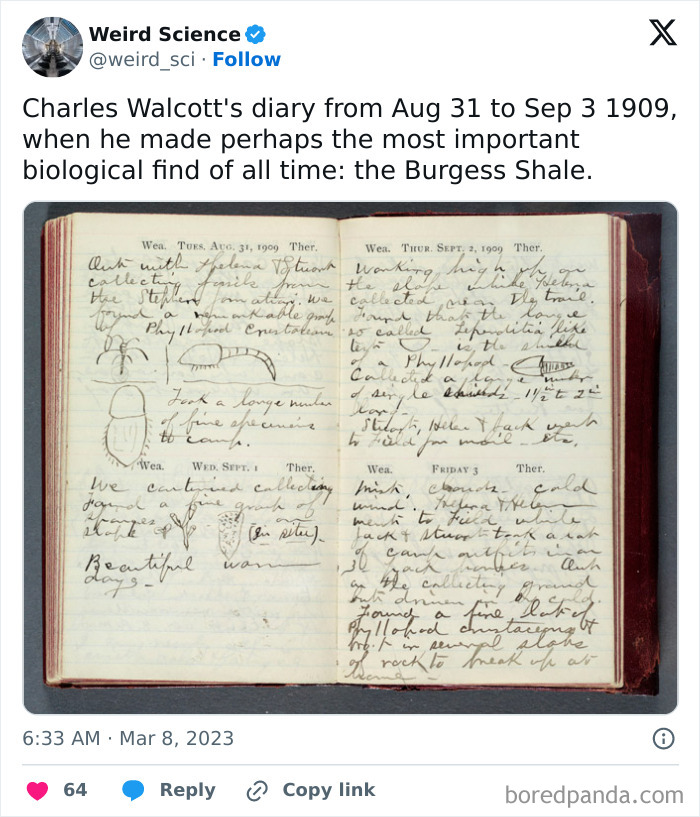 Weird Science
@weird_sci · Follow
Charles Walcott's diary from Aug 31 to Sep 3 1909,
when he made perhaps the most important
biological find of all time: the Burgess Shale.
Wea. TUES. AUG. 31, 1909 Ther.
Out with Helena & Stuart
collecting fossils from
the Stephen formation. We
found a remarkable group
of Phyllopod Crustaceans
Took a large number
of fine specimens
to camp.
Wea. WED. SEPT. 1 Ther.
We continued collecting
Found a fine group of
sponges on
slope (in situ)
Beautiful warm
days
Wea. THUR. SEPT. 2, 1909 Ther.
Working high up on
the slope while Helena
collected near the trail.
Found that the large
so called Leperditia like
test is the shield
of a Phyllopod
Collected a large number
of single 1 1/2 to 2
long.
Stuart, Helen & Jack went
to Field for mail - etc.
Wea. FRIDAY 3 Ther.
Mist, clouds cold
wind. Helena & Helen
went to Field while
Jack & Stuart took a lot
of camp outfits in on
3 pack horses Out
on the collecting ground
but driven in by cold
Found a fine lot of
Phyllopod crustaceans &
brot in several slabs
of rock to break up at
home
6:33 AM · Mar 8, 2023
64 Reply Copy link
boredpanda.com